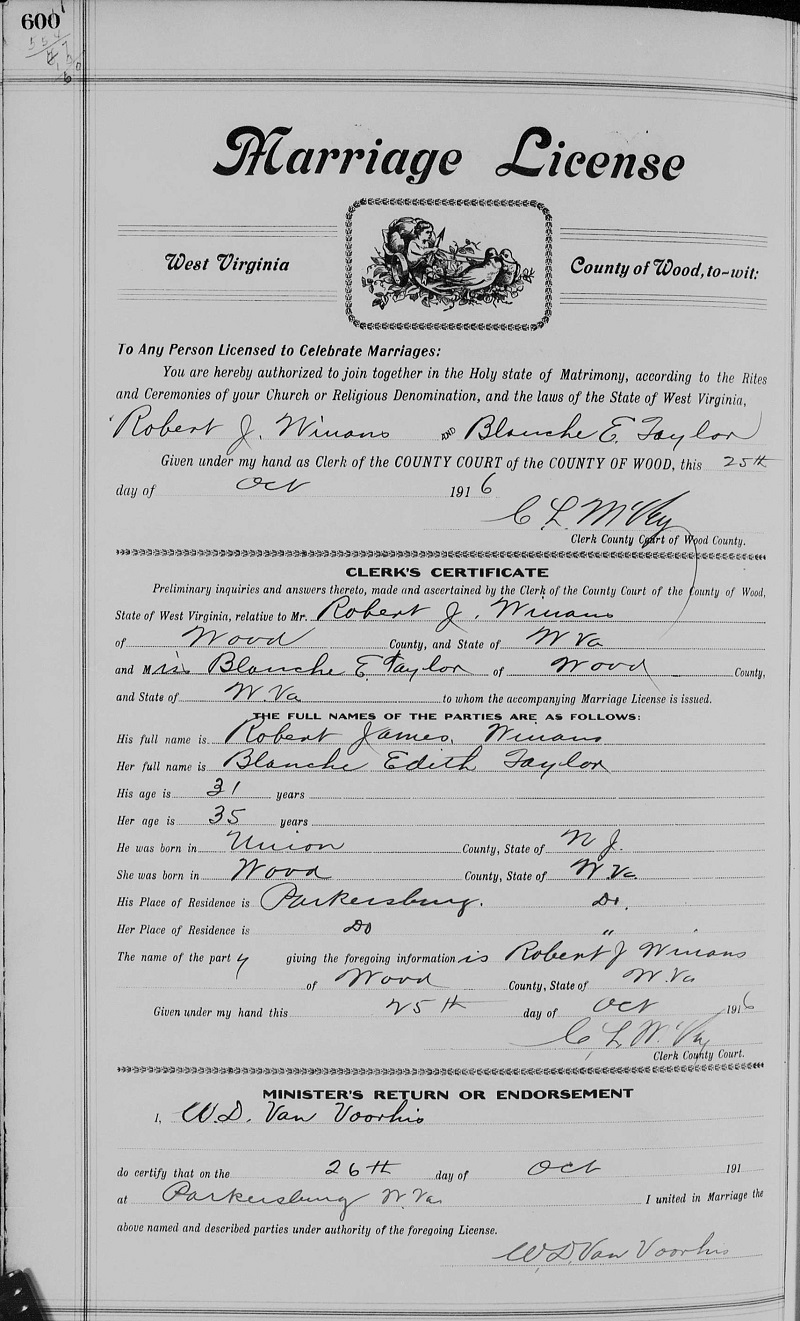 600
Marriage License
West Virginia
County of Wood, to-wit:
To Any Person Licensed to Celebrate Marriages:
You are hereby authorized to join together in the Holy state of Matrimony, according to the Rites
and Ceremonies of your Church or Religious Denomination, and the laws of the State of West Virginia,
Robert J. Winans AND Blanche E. Taylor
Given under my hand as Clerk of the COUNTY COURT of the COUNTY OF WOOD, this 25th
day of Oct 1916
C L McVey
Clerk County Court of Wood County.
CLERK'S CERTIFICATE
Preliminary inquiries and answers thereto, made and ascertained by the Clerk of the County Court of the County of Wood,
State of West Virginia, relative to Mr. Robert J. Winans
of Wood County, and State of W Va
and Miss Blanche E. Taylor of Wood County,
and State of W. Va to whom the accompanying Marriage License is issued.
THE FULL NAMES OF THE PARTIES ARE AS FOLLOWS:
His full name is Robert James Winans
Her full name is Blanche Edith Taylor
His age is 31 years
Her age is 35 years
He was born in Union County, State of N J.
She was born in Wood County, State of W. Va.
His Place of Residence is Parkersburg. Do.
Her Place of Residence is Do "
The name of the party giving the foregoing information is Robert J Winans
of Wood County, State of W. Va
Given under my hand this 25th day of Oct 1916
C. L McVey
Clerk County Court.
MINISTER'S RETURN OR ENDORSEMENT
I, W. D. Van Voorhis
do certify that on the 26th day of Oct 191
at Parkersburg W. Va. I united in Marriage the
above named and described parties under authority of the foregoing License.
W. D. Van Voorhis